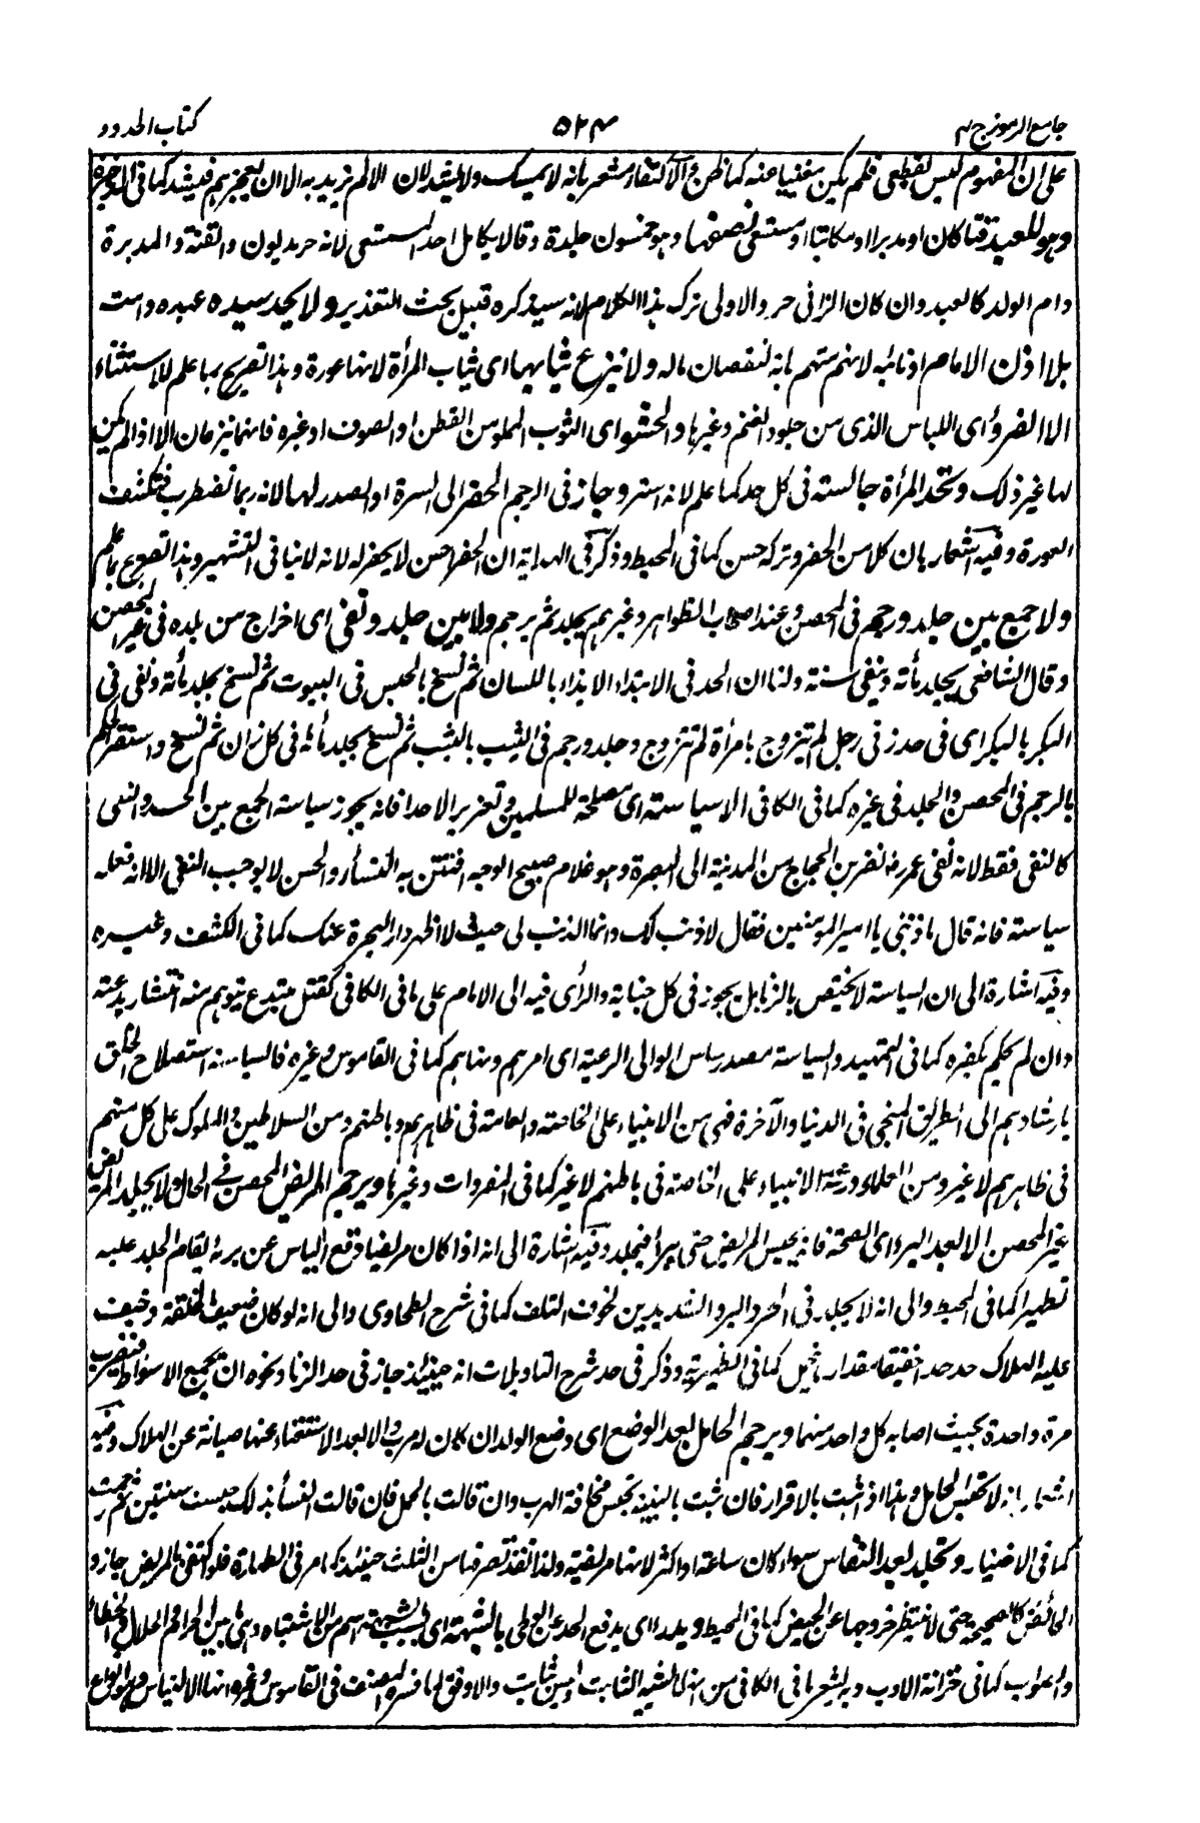 جامع الرموز ج ٢
٥٢٣
كتاب الحدود
على ان المفهوم ليس بقطعى فلم يكن مغنيا عنه كما ظن و فى الاكتفاء مشعر بانه لا يمسك ولا يشد لان الالم يزيد به الا ان يعجزهم فيشد كما فى
وهو للعبد قنا كان او مدبرا او مكاتبا او مستسعى نصفها وهو خمسون جلدة وقالا يكامل احد المستسعى لانه حر مديون والقنة والمدبرة
وام الولد كالعبد وان كان الزانى حر والاولى ترك هذا الكلام لانه سيذكره قبيل بحث التعذير ولا يحد سيده عبده وامته
بلا اذن الامام او نائبه لانه متهم بانه لنقصان ماله ولا ينزع ثيابها اى ثياب المرأة لانها عورة وهذا تصريح بما علم للاستثناء
الا الفرو اى اللباس الذى من جلود الغنم وغيرها والحشو اى الثوب المملو من القطن او الصوف او غيره فانهما ينزعان الا اذا لم يكن
لها غير ذلك وتحد المرأة جالسة فى كل حد كما علم لانه استر وجاز فى الرجم الحفر الى السرة او الصدر لها لانه ربما تضطرب فتكشف
العورة وفيه اشعار بان كلا من الحفر وتركه حسن كما فى المحيط وذكر فى الهداية ان الحفر احسن لا يحفر له لانه لا ينافى التشهير وهذا تصريح بما علم
ولا جمع بين جلد ورجم فى المحصن وعند اصحاب الظواهر وغيرهم يجلد ثم يرجم ولا بين جلد ونفى اى اخراج من بلده فى غير المحصن
وقال الشافعى يجلد مأته وينفى سنته ولنا ان الحد فى الابتداء الايذاء باللسان ثم نسخ بالحبس فى البيوت ثم نسخ بجلد مأته ونفى فى
البكر بالبكر اى فى حد زنى رجل لم يتزوج بامرأة لم تتزوج وجلد ورجم فى الثيب بالثيب ثم نسخ بجلد مأته فى كل زان ثم نسخ واستقر الحكم
بالرجم فى المحصن والجلد فى غيره كما فى الكافى الا سياسته اى مصلحة للمسلمين وتعزيرا لاحد فانه يجوز سياسة الجمع بين الحد والنفى
كالنفى فقط لانه نفى عمر رض نصر بن الحجاج من المدينة الى البصرة وهو غلام صبيح الوجه افتتن به النساء والحسن لا يوجب النفى الا انه فعله
سياسته فانه قال ما ذنبى يا امير المؤمنين فقال لا ذنب لك وانما الذنب لى حيث لا اطهر دار الهجرة عنك كما فى الكشف وغيره
وفيه اشارة الى ان السياسة لا يختص بالزنا بل يجوز فى كل جناية والرأى فيه الى الامام على ما فى الكافى كقتل مبتدع يتوهم منه انتشار بدعته
وان لم يحكم بكفره كما فى التمهيد والسياسة مصدر ساس الوالى الرعية اى امرهم ونهاهم كما فى القاموس وغيره فالسياسة استصلاح الخلق
بارشادهم الى الطريق المنجى فى الدنيا والآخرة فهى من الانبياء على الخاصة والعامة فى ظاهرهم وباطنهم ومن السلاطين والملوك على كل منهم
فى ظاهرهم لا غير ومن العلماء ورثة الانبياء على الخاصة فى باطنهم لا غير كما فى المفردات وغيرها ويرجم المريض المحصن فى الحال ولا يجلد المريض
غير المحصن الا بعد البرء اى الصحة فانه يحبس المريض حتى يبرأ فيجلد وفيه اشارة الى انه اذا كان مريضا وقع الياس عن برئه يقام الجلد عليه
تطهيرا كما فى المحيط والى انه لا يجلد فى الحر والبرد الشديدين لخوف التلف كما فى شرح الطحاوى والى انه لو كان ضعيف الخلقة وخيف
عليه الهلاك حد حدا خفيفا مقدار ما يحتمل كما فى الظهيرية وذكر فى حد شرح التاويلات انه حينئذ جاز فى حد الزنا ونحوه ان يجمع الاسواط فتضرب
مرة واحدة بحيث اصابه كل واحد منهما ويرجم الحامل بعد الوضع اى وضع الولد ان كان له مربى والا بعد الاستغناء عنها صيانة عن الهلاك وفيه
اشعار بانه لا تحبس الحامل وهذا اذا ثبت بالاقرار فان ثبت بالبينة تحبس مخافة الهرب وان قالت بالحمل فان قالت النساء بذلك حبست سنتين ثم رجمت
كما فى الاختيار وتجلد بعد النفاس سواء كان ساعة او اكثر لانها مريضة ولذا تنفذ تصرفها من الثلث حينئذ كما مر فى الطهارة فلو اكتفى بالمريض جاز و
الحائض كالصحيحة حتى لا ينتظر خروجها عن الحيض كما فى المحيط ويدرأ اى يدفع الحد عن الوطى بالشبهة اى بسبب الشبهة اسم من الاشتباه وهى بين الحرام والحلال والخطأ
والصواب كما فى خزانة الادب وبه يشعر ما فى الكافى من انها لشبيه الثابت وليس بثابت والاوفق لما فسره المصنف فى القاموس وغيره انها الالتباس